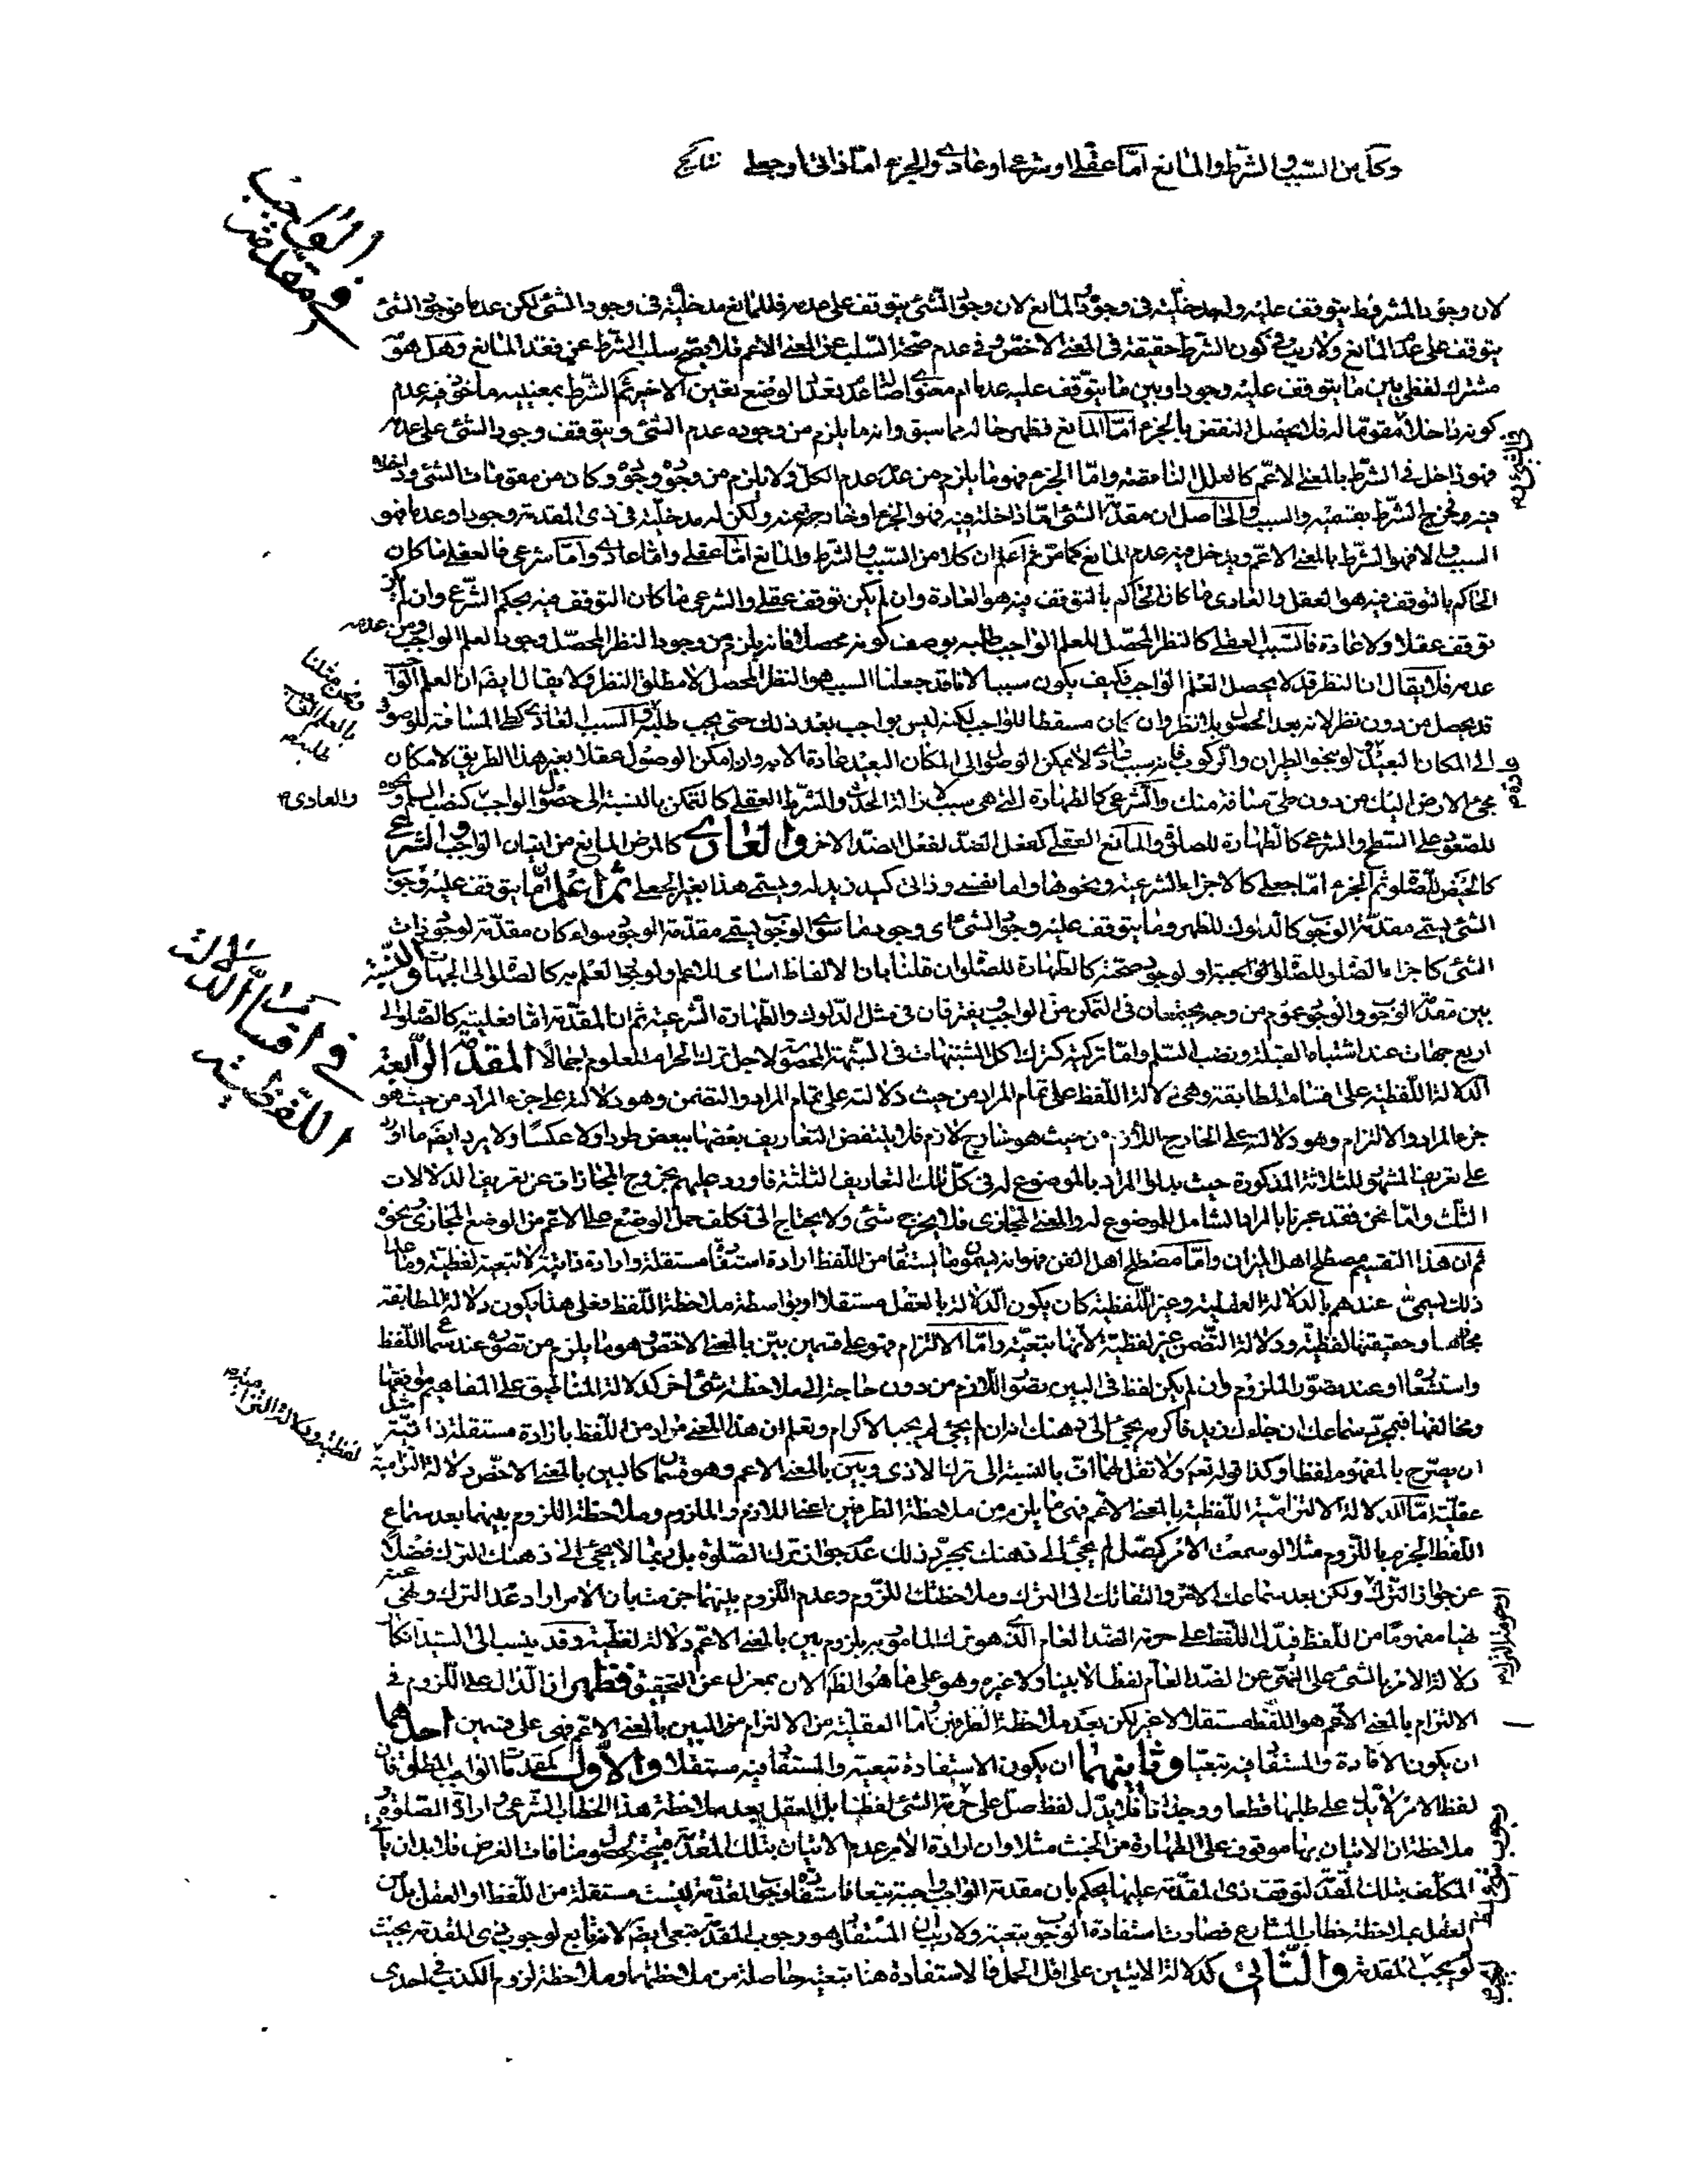 وكل من السبب والشرط والمانع امّا عقلى او شرعى او عادى والجزء امّا ذاتى او جعلى نتايج
فى مقدمة الواجب
لان وجود المشروط يتوقف عليه وله مدخليّة فى وجود المانع لان وجود الشئ يتوقف على عدمه فللمانع مدخليّة فى وجود الشئ لكن عدما فوجود الشئ
يتوقف على عدم المانع ولا ريب فى كون الشرط حقيقة فى المعنى الاخصّ وفى عدم صحة السّلب عن المعنى الاعم فلا يصحّ سلب الشرط عن فقد المانع وهل هو
مشترك لفظى بين ما يتوقف عليه وجودا وبين ما يتوقف عليه عدما ام معنوى اصالة عدم تعدد الوضع تعين الاخير ثم الشّرط بمعنييه مأخوذ فيه عدم
كونه داخلا مقوّما له فلا يحصل النقض بالجزء امّا المانع فظهر حاله مما سبق وانه ما يلزم من وجوده عدم الشئ ويتوقف وجود الشئ على عدمه
فهو داخل فى الشّرط بالمعنى الاعمّ كالعلل الناقصة وامّا الجزء فهو ما يلزم من عدمه عدم الكل ولا يلزم من وجوده وجوده وكان من مقومات الشئ وداخلا
فيه وبخرج الشّرط بقسميه والسبب والحاصل ان مقدمة الشئ امّا داخلة فيه فهو الجزء او خارجة عنه ولكن له مدخليّة فى ذى المقدمة وجودا وعدما فهو
السبب او لا فهو الشّرط بالمعنى الاعمّ ويدخل فيه عدم المانع كما مرّ ثم اعلم ان كلا من السّبب والشرط والمانع امّا عقلى وامّا عادى وامّا شرعى فالعقلى ما كان
الحاكم بالتوقف فيه هو العقل والعادى ما كان الحاكم بالتوقف فيه هو العادة وان لم يكن توقف عقلى والشرعى ما كان التوقف فيه بحكم الشّرع وان لم يكن
توقف عقلا ولا عادة فالسّبب العقلى كالنظر المحصّل للعلم الواجب طلبه بوصف كونه محصلا فانه يلزم من وجود النظر المحصّل وجود العلم الواجب ومن عدمه
عدمه فلا يقال ان النظر قد لا يحصل العلم الواجب فكيف يكون سببا لانا قد جعلنا السبب هو النظر المحصل لا مطلق النظر ولا يقال ايضا ان العلم الواجب
قد يحصل من دون نظر لانه بعد الحصول بلا نظر وان كان مسقطا للواجب لكنه ليس بواجب بعد ذلك حتى يجب طلبه والسبب العادى كطى المسافة للوصول
الى المكان البعيد لو بنحو الطيران والركوب فانه سبب عادى لا يمكن الوصول الى المكان البعيد عادة الا به وان امكن الوصول عقلا بغير هذا الطريق لامكان
مجئ الارض اليك من دون طىّ مسافة منك والشّرعى كالطهارة التى هى سبب لازالة الحدث والشّرط العقلى كالتمكن بالنسبة الى حصول الواجب كنصب السلم ونحوه
للصعود على السّطح والشرعى كالطهارة للصلوة والمانع العقلى كفعل الضدّ لفعل الضدّ الاخر والعادى كالمرض المانع من اتيان الواجب والشّرعى
كالحيض للصلوة ثم الجزء امّا جعلى كالاجزاء الشرعية ونحوها واما نفسى وذاتى كيد زيد له ويسمى هذا بغير الجعلى ثم اعلم ان ما يتوقف عليه وجوب
الشئ يسمى مقدمة الوجوب كالدلوك للظهر وما يتوقف عليه وجود الشئ اى وجود ما سوى الوجوب يسمى مقدّمة الوجود سواء كان مقدّمة لوجود ذات
الشئ كاجزاء الصّلوة للصّلوة الواجبة او لوجود صحته كالطهارة للصّلوة ان قلنا بان الالفاظ اسامى للاعم او لوجود العلم به كالصّلوة الى الجهات والنسبة
بين مقدمة الوجوب والوجود عموم من وجه يجتمعان فى التمكن من الواجب ويفترقان فى مثل الدّلوك والطّهارة الشّرعية ثم ان المقدّمة امّا فعلية كالصّلوة الى
اربع جهات عند اشتباه القبلة ونصب السّلم وامّا تركية كترك اكل المشتبهات فى الشّبهة المحصورة لاجل ترك الحرام المعلوم اجمالا المقدمة الرّابعة
الدلالة اللّفظية على اقسام المطابقة وهى دلالة اللّفظ على تمام المراد من حيث دلالته على تمام المراد والتضمن وهو دلالته على جزء المراد من حيث هو
جزء المراد والالتزام وهو دلالته على الخارج اللازم من حيث هو خارج لازم فلا ينتقض التعاريف بعضها ببعض طردا ولا عكسا ولا يرد ايضا ما اورد
على تعريف المشهور للثلاثة المذكورة حيث بدلوا المراد بالموضوع له فى كل تلك التعاريف الثلثة فاورد عليهم بخروج المجازات عن تعريف الدلالات
الثلث وامّا نحن فقد عبرنا بالمراد الشامل للموضوع له والمعنى المجازى فلا يخرج شئ ولا يحتاج الى تكلف حمل الوضع على الاعم من الوضع المجازى ونحوه
ثم ان هذا التقسيم مصطلح اهل الميزان وامّا مصطلح اهل الفن فهو انه يسمون ما يستفاد من اللّفظ ارادة استفادة مستقلة وارادة ذاتية لا تبعية لفظية وما عدا
ذلك يسمىّ عندهم بالدلالة العقلية وغير اللّفظية كان يكون الدّلالة بالعقل مستقلا او بواسطة ملاحظة اللّفظ فعلى هذا يكون دلالة المطابقة
مجازها وحقيقتها لفظيّة ودلالة التّضمن غير لفظية لانّها تبعيّة وامّا الالتزام فهو على قسمين بيّن بالمعنى الاخصّ وهو ما يلزم من تصوره عند سماع اللّفظ
واستشعارا او عند تصوّر الملزوم وان لم يكن لفظ فى البين تصوّر اللّازم من دون حاجة الى ملاحظة شئ اخر كدلالة المناطيق على المفاهيم موافقها
ومخالفها فبمجرد سماعك ان جاءك زيد فاكرمه يجئ الى ذهنك انه ان لم يجئ لم يجب الاكرام وتعلم ان هذا المعنى مراد من اللّفظ بارادة مستقلة ذاتيّة مثل
ان يصرّح بالمفهوم لفظا وكذا قوله تعالى ولا تقل لهما اف بالنسبة الى ترك الاذى وبيّن بالمعنى الاعم وهو قسما كالبين بالمعنى الاخصّ دلالة التزامية
عقليّة امّا الدلالة الالتزاميّة اللّفظية بالمعنى الاعّم فهى ما يلزم من ملاحظة الطرفين اعنى اللازم والملزوم وملاحظة اللزوم بينهما بعد سماع
اللّفظ الجزم باللزوم مثلا لو سمعت الامر كصلّ لم يجئ الى ذهنك بمجرّد ذلك عدم جواز ترك الصّلوة بل ربما لا يجئ الى ذهنك الترك فضلا
عن جواز التّرك ولكن بعد سماعك الامر والتفاتك الى الترك وملاحظتك للزّوم وعدم اللّزوم بينهما جزمت بان الامر اراد عدم الترك ونهى عنه
نهيا مفهوما من اللّفظ فيدل اللّفظ على حرمة الضدّ العام الّذى هو ترك المامور به بلزوم بين بالمعنى الاعمّ دلالة لفظية وقد ينسب الى السّيد انكار
دلالة الامر بالشئ على النهى عن الضدّ العام لفظا لا بينا ولا غيره وهو على ما هو الظاهر الان بمعزل عن التحقيق فظهر ان الدّال على اللّزوم فى
الالتزام بالمعنى الاعّم هو اللّفظ مستقلا لا غير لكن بعد ملاحظة الطرفين امّا العقلية من الالتزام من البين بالمعنى الاعم فهى على قسمين احدهما
ان يكون الافادة والمستفاد فيه تبعيّا وثانيهما ان يكون الاستفادة تبعية والمستفاد فيه مستقلا والاوّل كمقدمة الواجب المطلق فان
لفظ الامر لا يدل على طلبها قطعا ووجدانا فلا يدّل لفظ صلّ على حرمة الشئ لفظيا بل العقل بعد ملاحظة هذا الخطاب الشرعى وارادة الصّلوة و
ملاحظة ان الاتيان بها موقوف على الطهارة من الخبث مثلا وان ارادة الامر عدم الاتيان بتلك المقدّمة منافات الغرض فلا بد ان يأتى
المكلّف بتلك المقدمة لتوقف ذى المقدّمة عليها يحكم بان مقدمة الواجب واجبة تبعا فاستفادة وجوب المقدّمة ليست مستقلة من اللّفظ او العقل بل من
العقل بملاحظة خطاب الشارع فصارت استفادة الوجوب تبعية ولا ريب ان المستفاد هو وجوب المقدّمة تبعى ايضا لانه تابع لوجوب ذى المقدمة بحيث
لم يجب المقدمة والثّانى كدلالة الايتين على اقل الحمل فالاستفادة هنا تبعيّة حاصلة من ملاحظتهما وملاحظة لزوم الكذب فى احدى
والعادى
فى اقسام الدلالة
اللّفظية